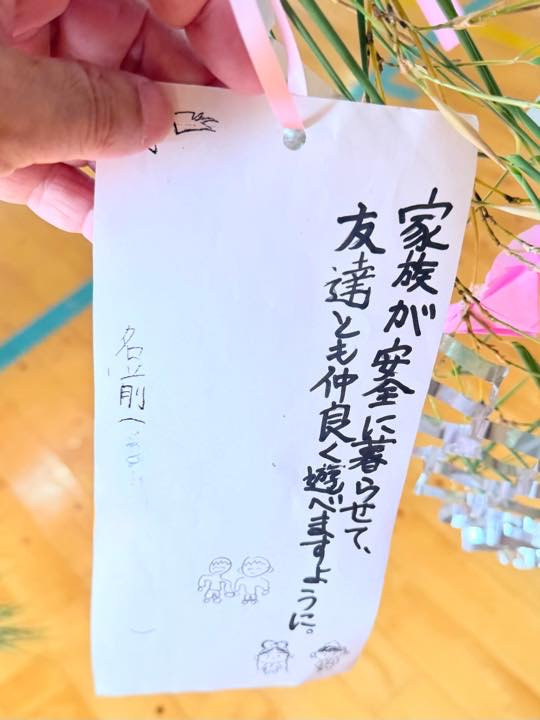 家族が安全に暮らせて、
友達とも仲良く遊べますように。
名前